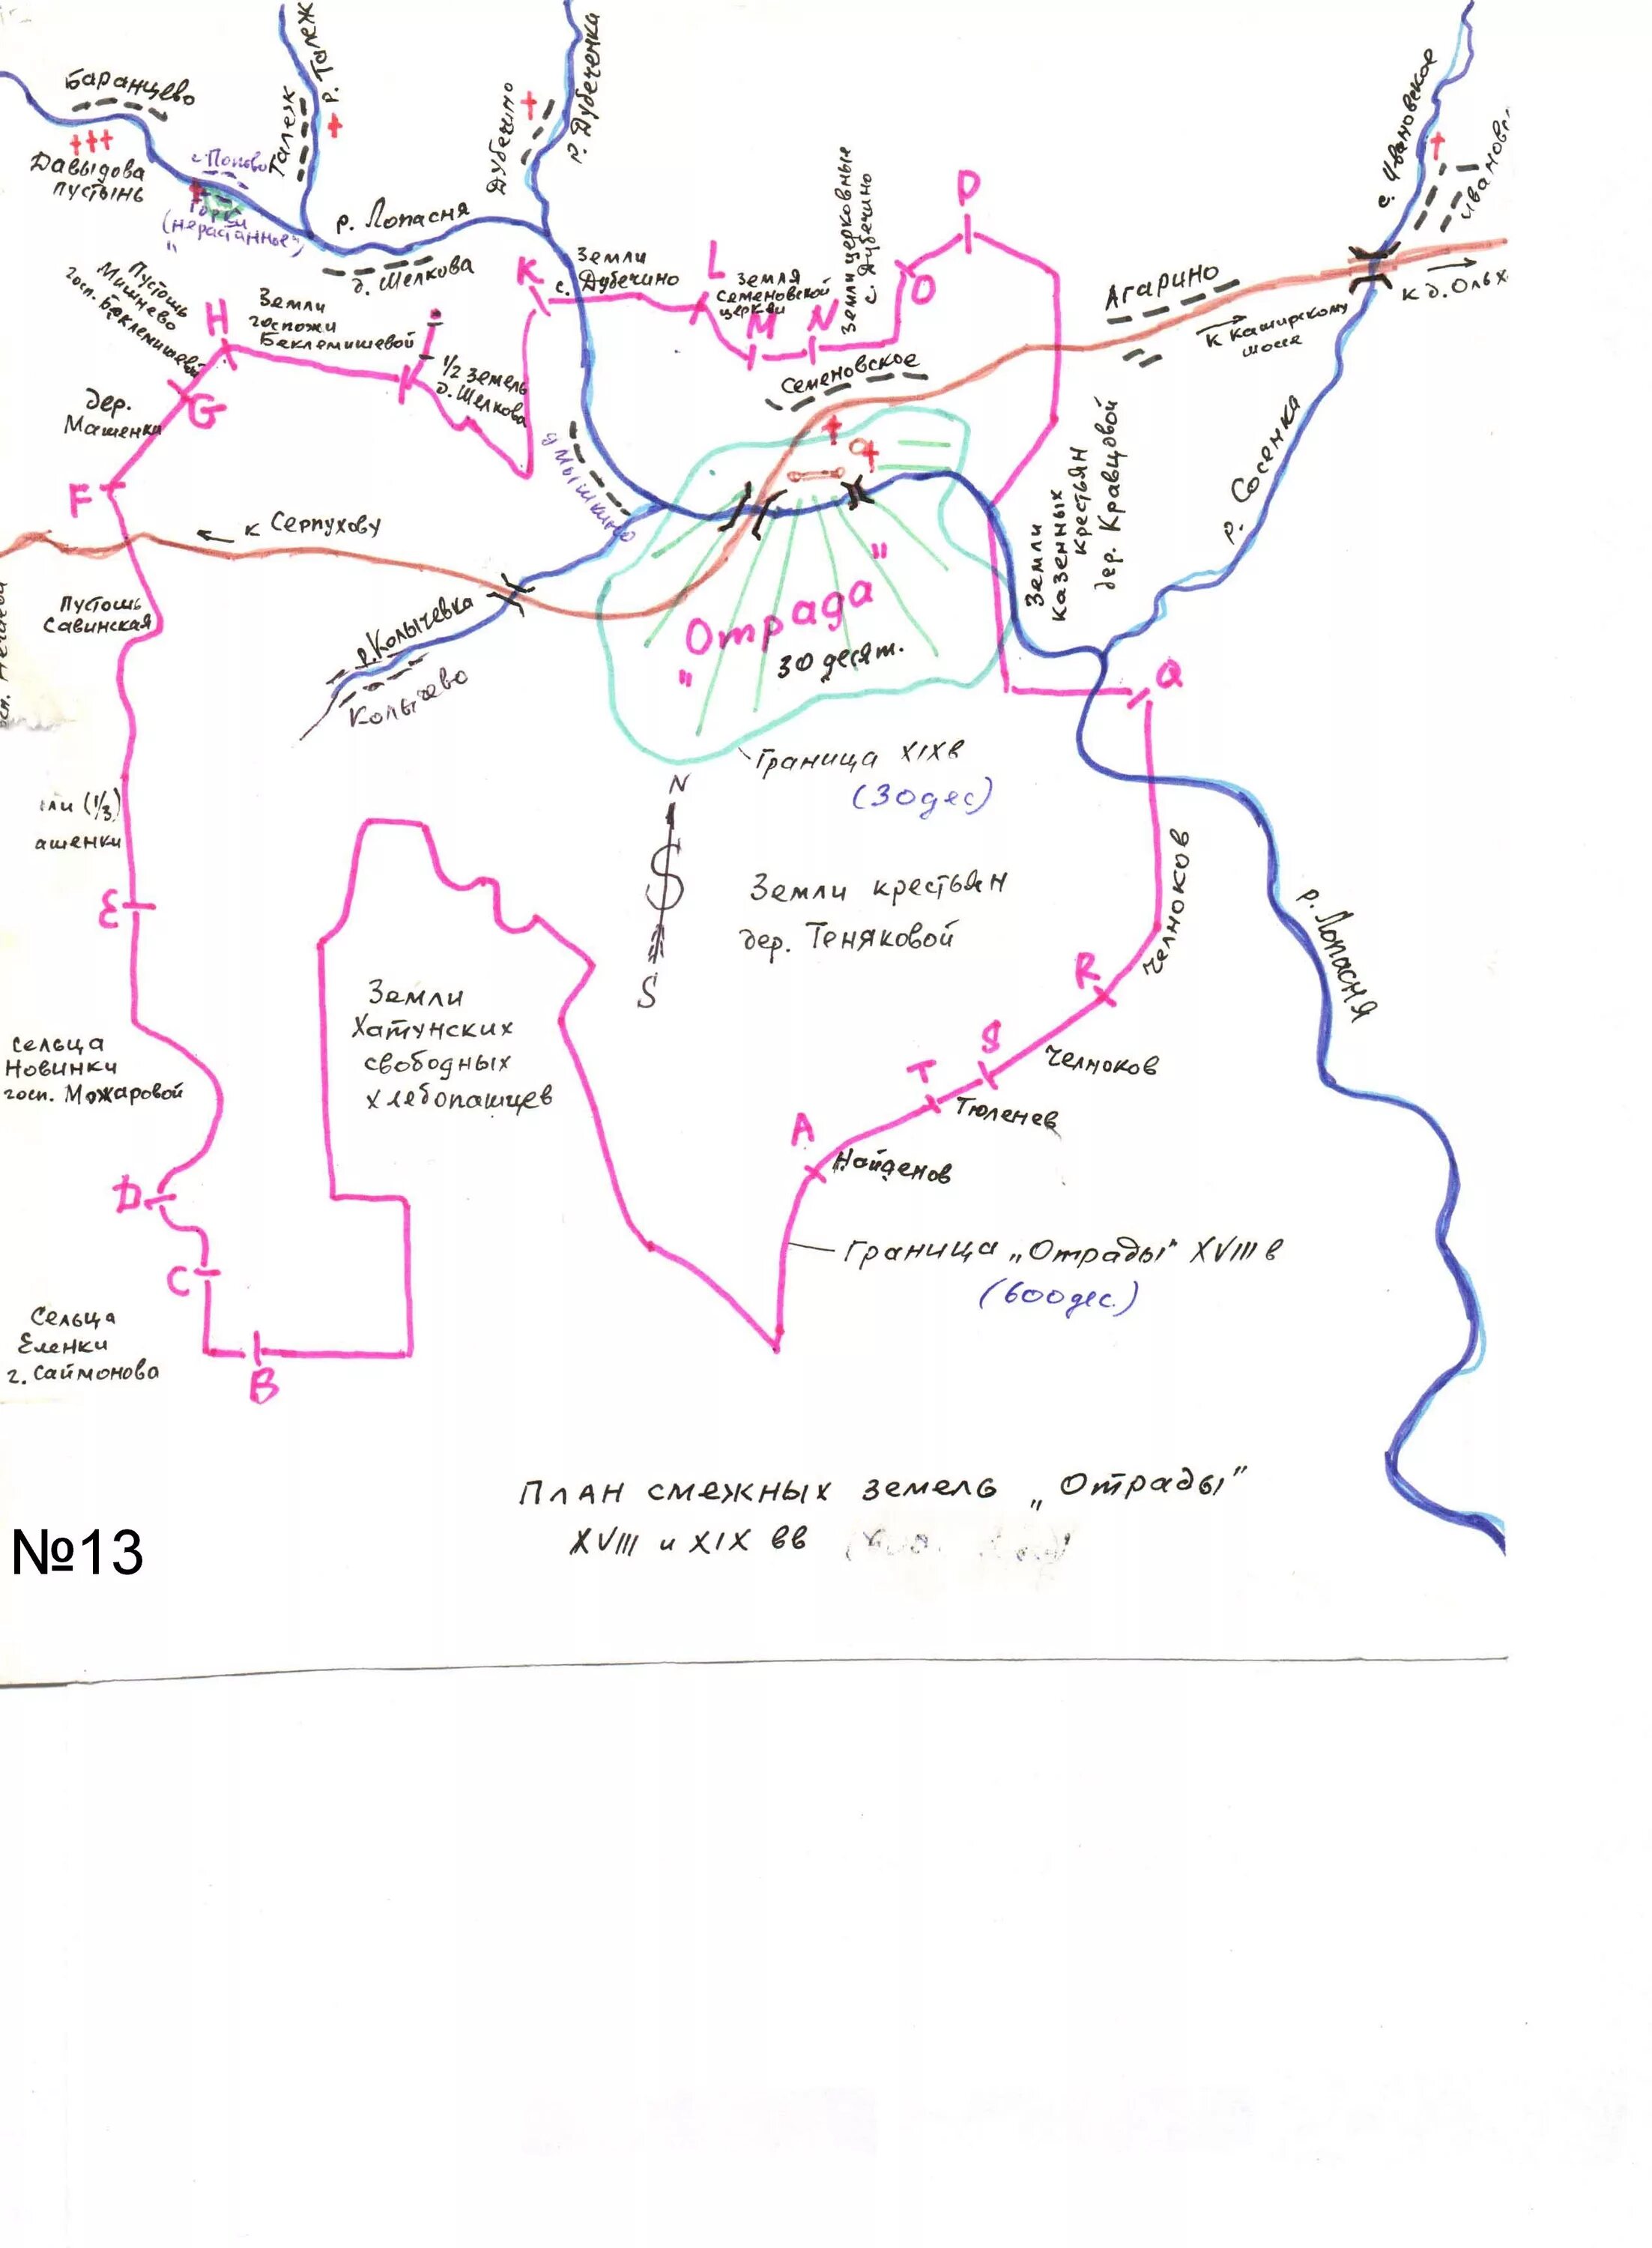 Баранцево
Давыдова
пустынь
с. Попово
Горки
Талеж
р. Талеж
Дубечино
р. Дубеченка
р. Лопасня
д. Шелкова
Пустошь
Мишнево
госп. Беклемишевой
H
Земли
госпожи
Беклемишевой
i
1/2 земель
д. Шелкова
K
Земли
с. Дубечино
L
Земля
Семеновской
церкви
M
N
Земли церковные
с. Дубечино
O
P
Семеновское
Агарино
к Каширскому
шоссе
с. Ивановское
к д. Ольх
дер.
Машенки
G
F
к Серпухову
д Мышкино
р. Колычевка
Колычево
"Отрада"
30 десят.
Земли
казенных
крестьян
дер. Кравцовой
р. Сосенка
Q
Пустошь
Савинская
Граница XIXв
(30дес)
N
S
Земли крестьян
дер. Теняковой
(1/3)
E
Челноков
р. Лопасня
R
Земли
Хатунских
свободных
хлебопашцев
S
Челноков
T
Тюленев
A
Найденов
Сельца
Новинки
госп. Можаровой
D
C
Граница „Отрады" XVIII в
(600дес.)
Сельца
Еленки
г. Саймонова
B
План смежных земель „Отрады"
XVIII и XIX вв
№13